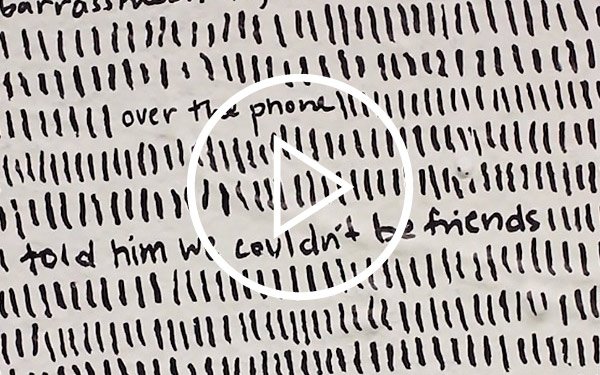 over the phone
told him we couldn't be friends